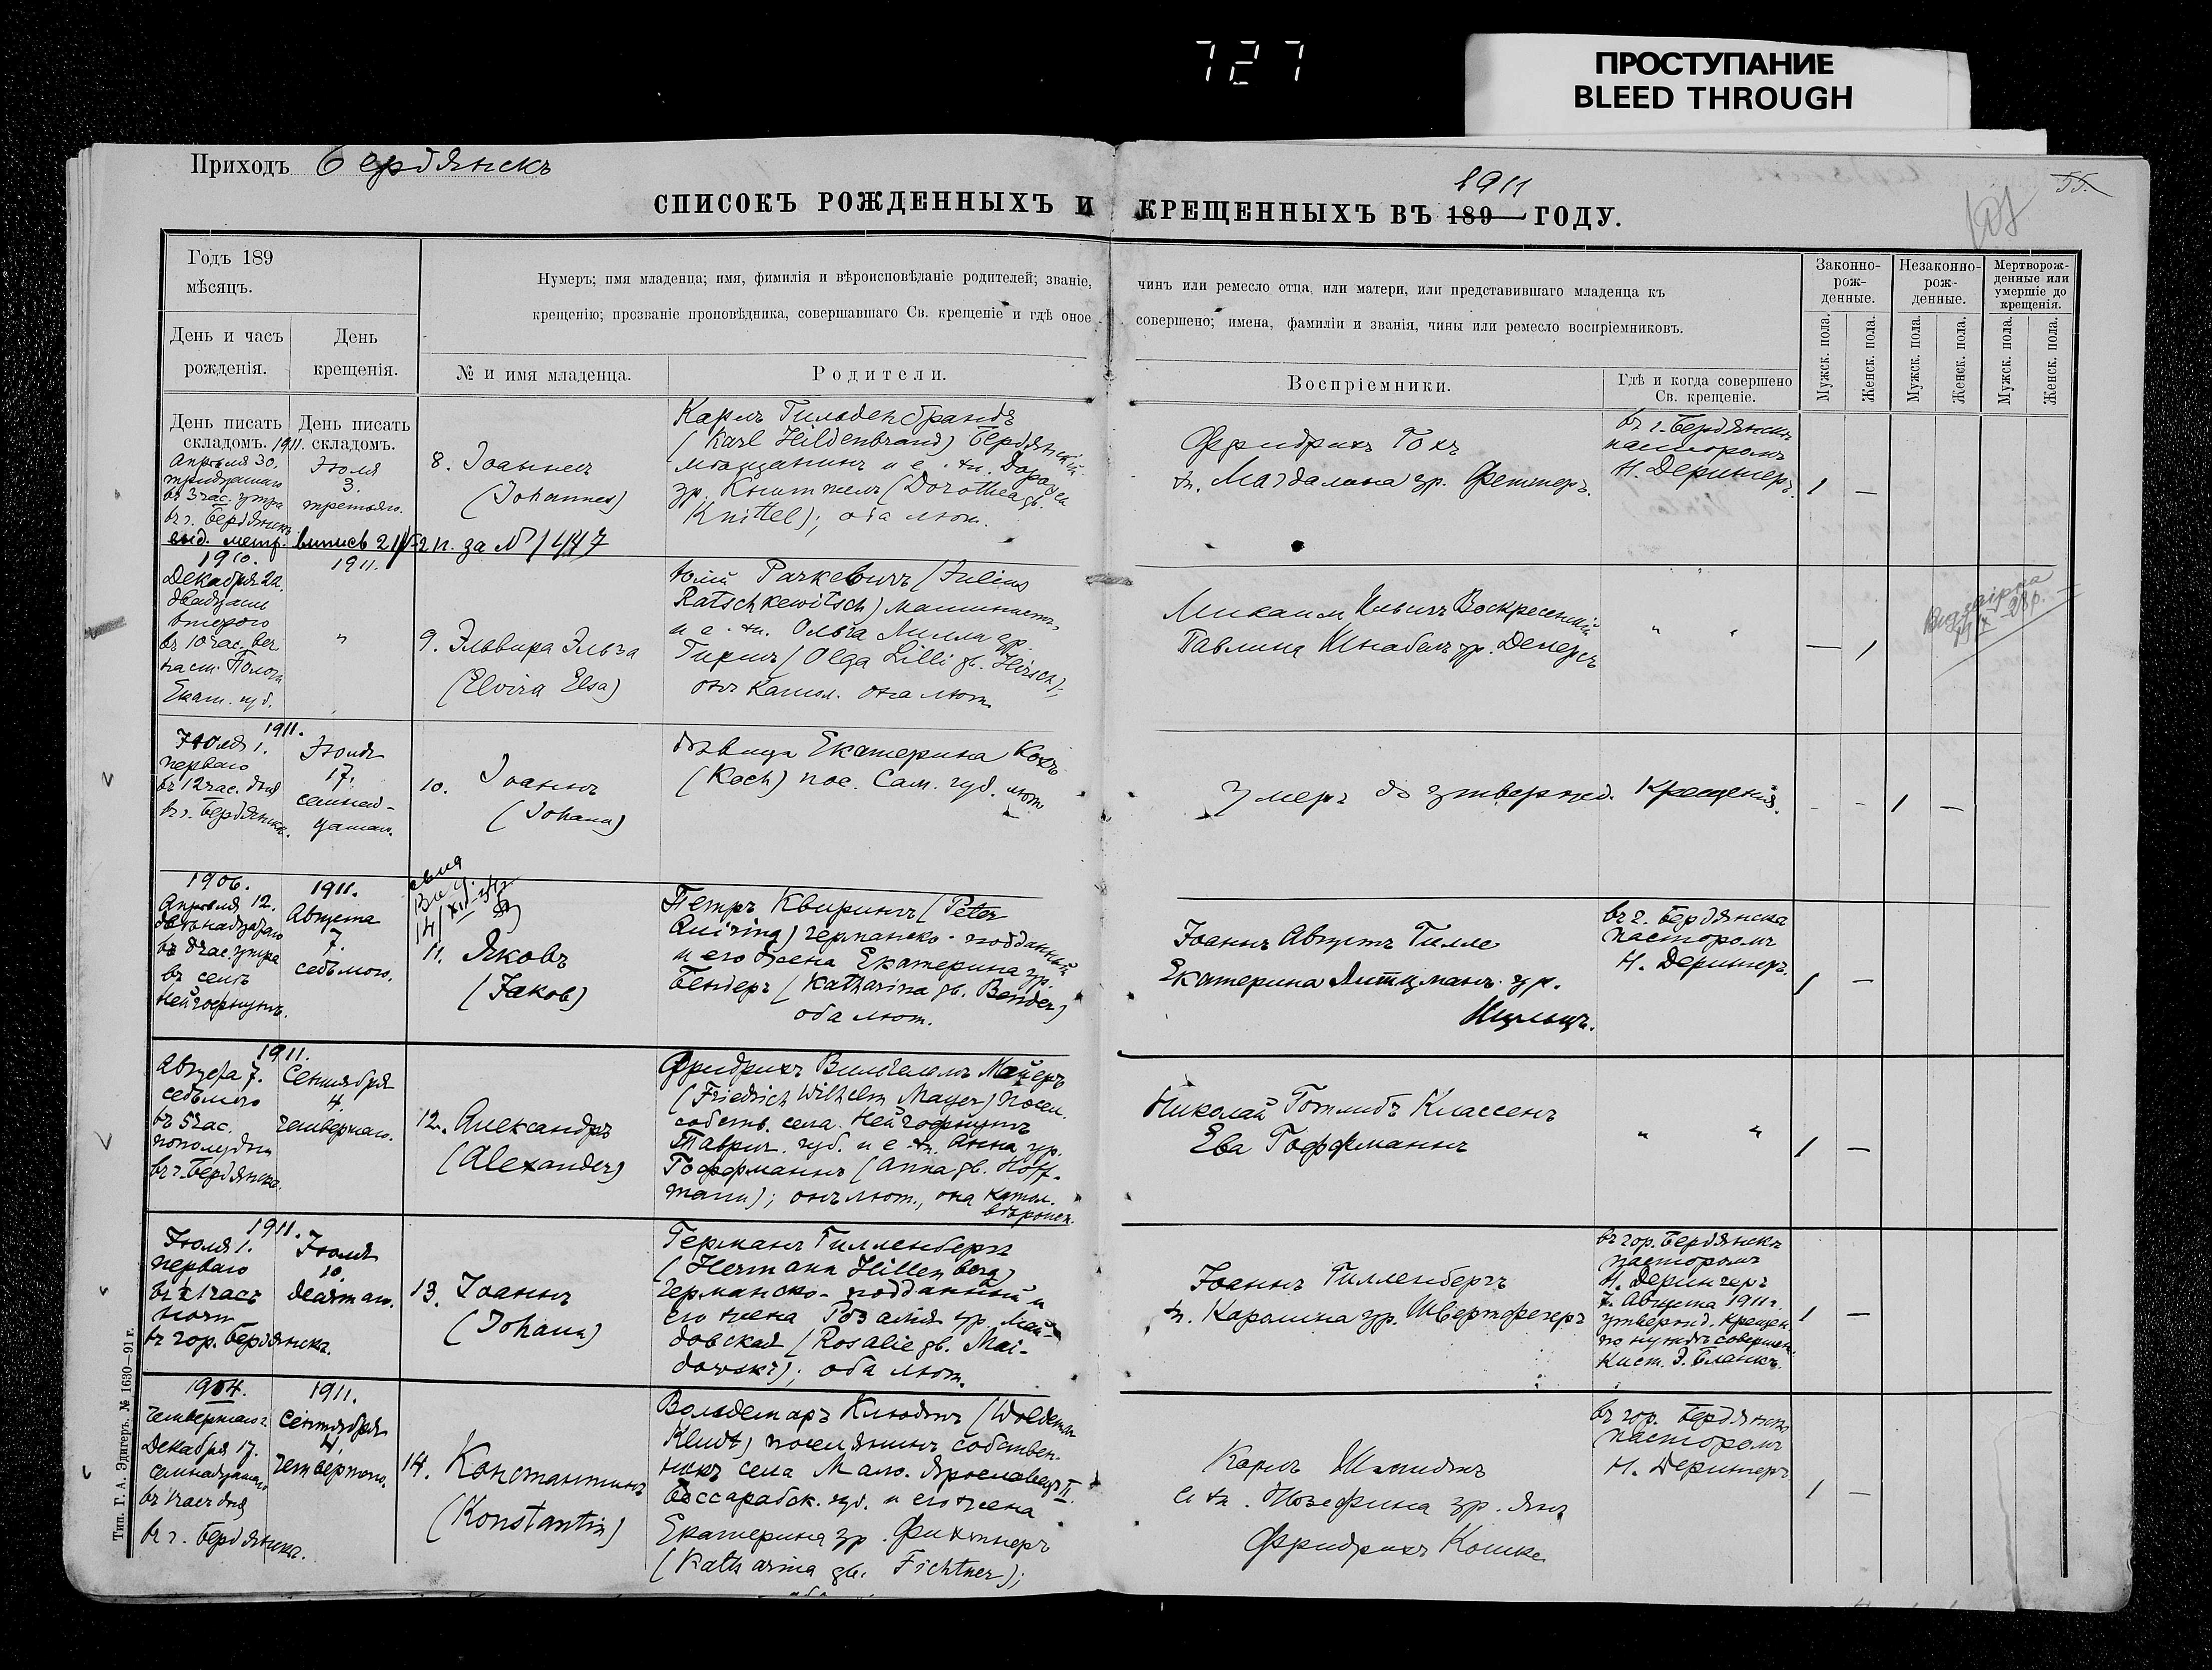 727
ПРОСТУПАНИЕ
BLEED THROUGH
Приходъ Бердянскъ
55.
1911
СПИСОКЪ РОЖДЕННЫХЪ И КРЕЩЕННЫХЪ ВЪ 189 ГОДУ.
Годъ 189
мѣсяцъ.
День и часъ
рожденія.
День
крещенія.
Нумеръ; имя младенца; имя, фимилія и вѣроисповѣданіе родителей; званіе, чинъ или ремесло отца, или матери, или представившаго младенца къ
крещенію; прозваніе проповѣдника, совершавшаго Св. крещеніе и гдѣ оное совершено; имена, фамиліи и званія, чины или ремесло воспріемниковъ.
№ и имя младенца.
Родители.
Воспріемники.
Гдѣ и когда совершено
Св. крещеніе.
Законно-
рож-
денные.
Незаконно-
рож-
денные.
Мертворож-
денные или
умершіе до
крещенія.
Мужск. пола.
Женск. пола.
Мужск. пола.
Женск. пола.
Мужск. пола.
Женск. пола.
День писать
складомъ.
День писать
складомъ.
1911.
Апрѣля 30.
тридцатаго
въ 3 час. утра
въ г. Бердянскѣ
Іюля
3.
третьяго.
8. Іоаннес
(Johannes)
Карлъ Гильденбрандъ
(Karl Hildenbrand) Бердянскій
мѣщанинъ и е. ж. Доротея
ур. Книттель (Dorothea gb.
Knittel); оба лют.
Фридрихъ Гохъ
ж. Магдалина ур. Феттеръ.
въ г. Бердянскѣ
пасторомъ
Н. Дерингеръ.
1 —
выд. метр. выпись за № 1447
1910.
Декабря 22.
двадцать
второго
въ 10 час. веч.
Екат. губ.
1911.
"
9. Эльвира Эльза
(Elvira Elsa)
Юлій Рачкевичъ (Julius
Ratschkewitsch) машинистъ
и е. ж. Ольга Лилли ур.
Гиршъ (Olga Lilli gb. Hirsch);
онъ катол. она лют.
Михаилъ Ильичъ Воскресенскій
Павлина Шнабель ур. Денерсъ
" "
— 1
1911.
Іюля 1.
перваго
въ 12 час. дня
въ г. Бердянскѣ.
Іюля
17.
семнад-
цатаго.
10. Іоаннъ
(Johann)
дѣвица Екатерина Кохъ
(Koch) пос. Сам. губ. лют.
Умеръ до утвержд. крещенія.
- - 1 —
1906.
Апрѣля 12.
двѣнадцатаго
въ 8 час. утра
въ селѣ
Нейгофнунгъ.
1911.
Августа
7.
седьмого.
11. Яковъ
(Jakob)
Петръ Квирингъ (Peter
Quiring) германско-подданный
и его жена Екатерина ур.
Бендеръ (Katharina gb. Bender)
оба лют.
Іоаннъ Августъ Гилле
Екатерина Литцманъ ур.
Шульцъ.
въ г. Бердянскѣ
пасторомъ
Н. Дерингеръ.
1 —
1911.
Августа 7.
седьмого
въ 5 час.
пополудни
въ г. Бердянскѣ.
Сентября
4.
четвертаго.
12. Александръ
(Alexander)
Фридрихъ Вильгельмъ Майеръ
(Friedrich Wilhelm Mayer) посел.
собств. села Нейгофнунгъ
Таврич. губ. и е. ж. Анна ур.
Гоффманнъ (Anna gb. Hoff-
mann); онъ лют., она катол.
вѣроисп.
Николай Готлибъ Классенъ
Ева Гоффманнъ
" "
1 —
1911.
Іюля 1.
перваго
ночи
въ гор. Бердянскѣ.
Іюля
10.
десятаго.
13. Іоаннъ
(Johann)
Германъ Гилленбергъ
(Hermann Hillenberg)
германско-подданный и
его жена Розалія ур. Май-
довская (Rosalie gb. Mai-
dowski); оба лют.
Іоаннъ Гилленбергъ
ж. Каролина ур. Швертфегеръ
въ гор. Бердянскѣ
пасторомъ
Н. Дерингеръ
7. Августа 1911 г.
утвержд. крещен.
по нуждѣ совершен.
Кист. Э. Бланкъ.
1 —
1904.
четвертаго г.
Декабря 17.
семнадцатаго
въ г. Бердянскѣ.
1911.
Сентября
4.
четвертаго.
14. Константинъ
(Konstantin)
Вольдемаръ Клюдтъ (Woldemar
Kludt) поселянинъ собствен-
никъ села Мало-Ярославецъ II.
Бессарабск. губ. и его жена
Екатерина ур. Фихтнеръ
(Katharina gb. Fichtner);
Карлъ Шмидтъ
и ж. Жозефина ур. Янъ
Фридрихъ Кошке
въ гор. Бердянскѣ
пасторомъ
Н. Дерингеръ
1 —
Тип. Г. А. Эдигеръ. № 1630—91 г.